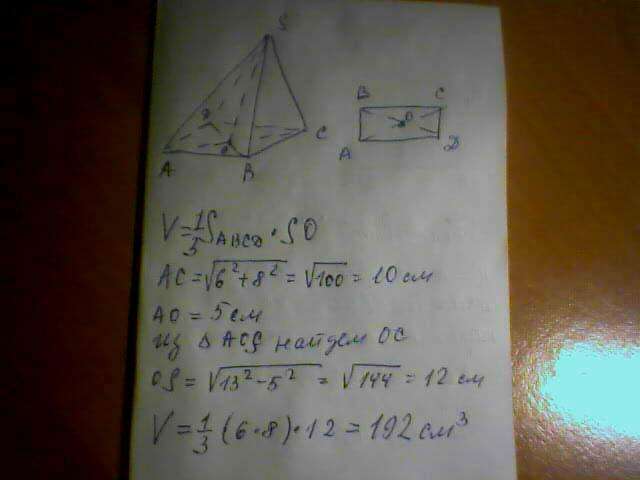 S
D
O
C
A
B
B
C
O
A
D
V=1/3 S_ABCD · SO
AC = √(6²+8²) = √100 = 10 см
AO = 5 см
Из Δ AOS найдем OС
OS = √(13²-5²) = √144 = 12 см
V = 1/3 (6·8)·12 = 192 см³